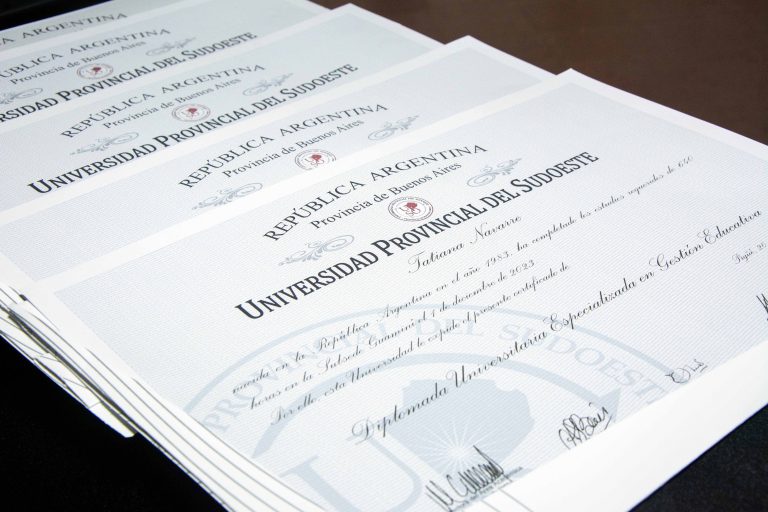 REPÚBLICA ARGENTINA
REPÚBLICA ARGENTINA
Provincia de Buenos Aires
UNIVERSIDAD PROVINCIAL DEL SUDOESTE
REPÚBLICA ARGENTINA
Provincia de Buenos Aires
UNIVERSIDAD PROVINCIAL DEL SUDOESTE
REPÚBLICA ARGENTINA
REPÚBLICA ARGENTINA
Provincia de Buenos Aires
UNIVERSIDAD PROVINCIAL DEL SUDOESTE
Tatiana Navarre
nacida en la República Argentina en el año 1983, ha completado los estudios requeridos de 640
horas en la Subsede Guaminí el 1 de diciembre de 2023
Por ello, esta Universidad le expide el presente certificado de
Diplomada Universitaria Especializada en Gestión Educativa
Pigüé, 26
PROVINCIAL DEL SUDOESTE